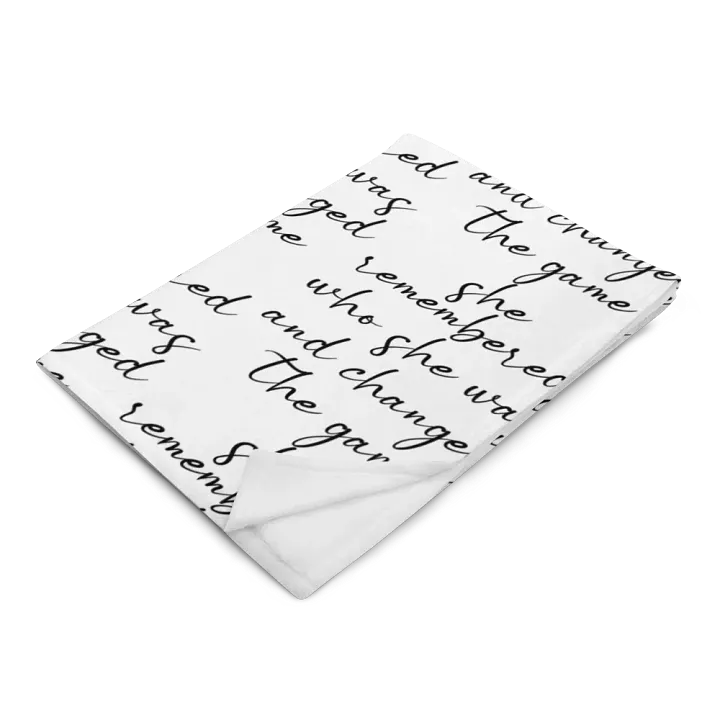 ed and change
was
ged the game
me
she
remembered
who she wa
ed and change
was the gam
ged
s
rememb